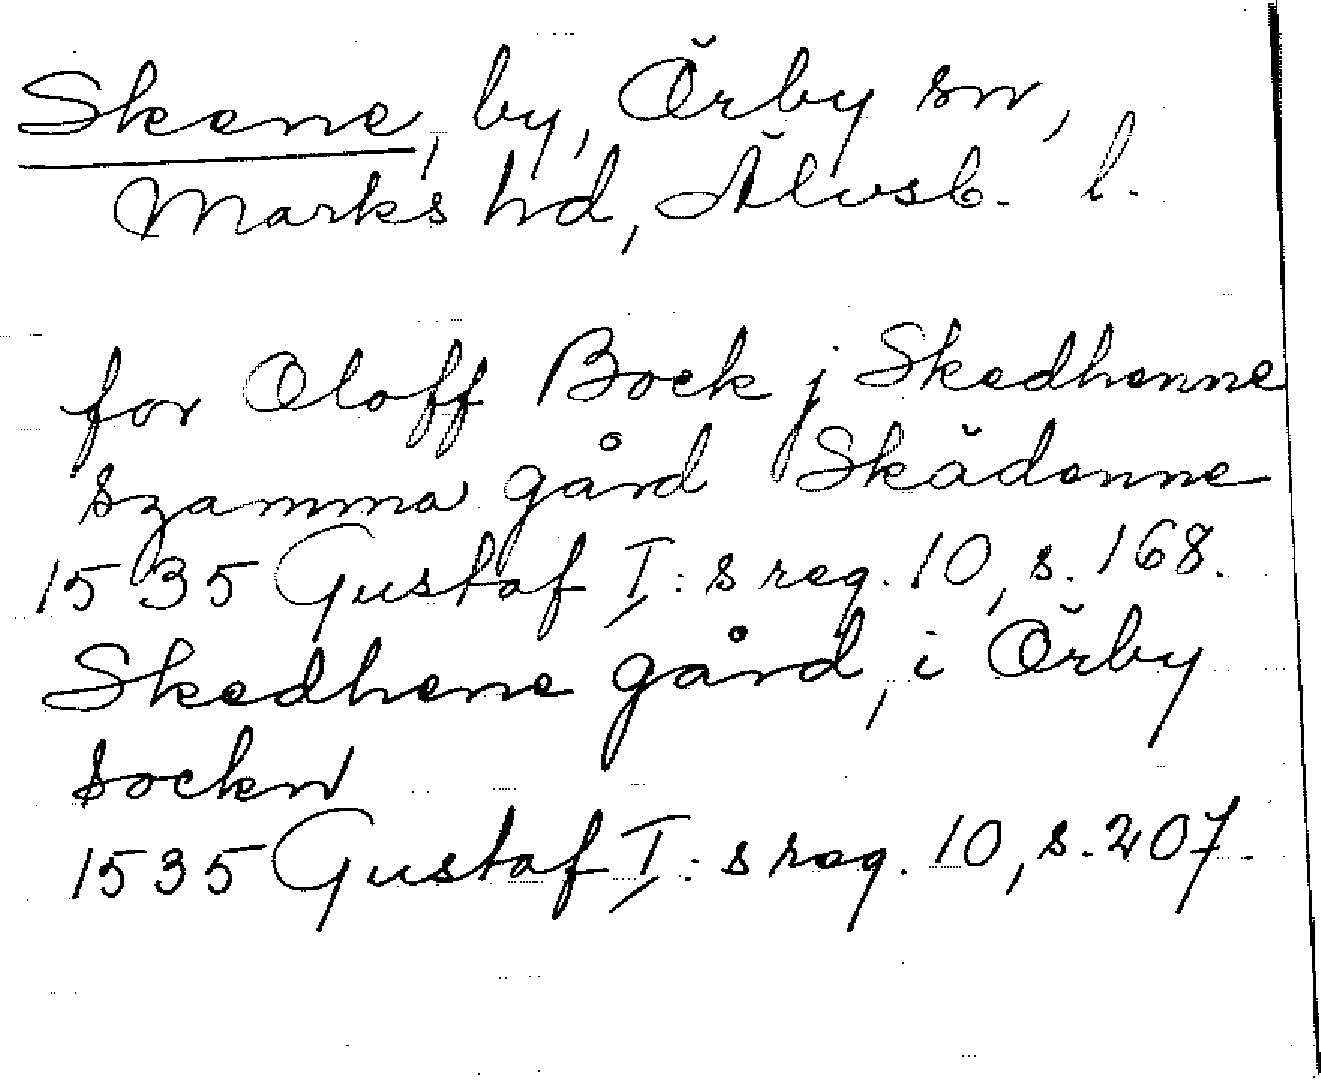 Skene, by, Örby sn,
Marks hd, Älvsb. l.
for Oloff Bock j Skedhenne
szamma gård Skädenne
1535 Gustaf I:s reg. 10, s. 168.
Skedhene gård, i Örby
sockn
1535 Gustaf I:s reg. 10, s. 207.